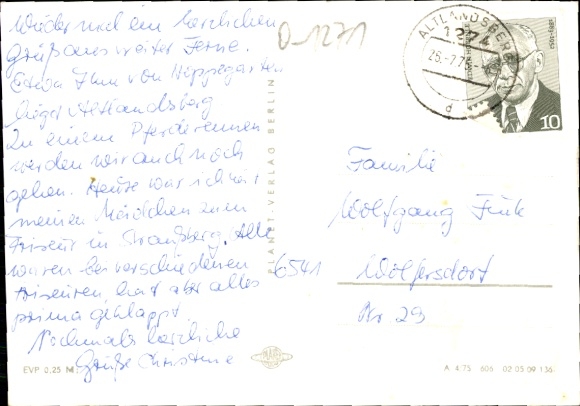 Wieder mal ein herzlichen
Gruß aus weiter Ferne.
Etwa 7 km von Hoppegarten
liegt Altlandsberg
Zu einem Pferderennen
werden wir auch noch
gehen. Heute war ich mit
meinen Mädchen zum
Friseur in Straußberg. Alle
waren bei verschiedenen
Friseuren, hat aber alles
prima geklappt.
Nochmals herzliche
Grüße Christine
EVP 0.25 M
D-1271
PLANET-VERLAG BERLIN
ALTLANDSBERG
1274
d
10
Familie
Wolfgang Fink
6541 Wolfersdorf
Nr 29
A 4/75 606 02 05 09 136